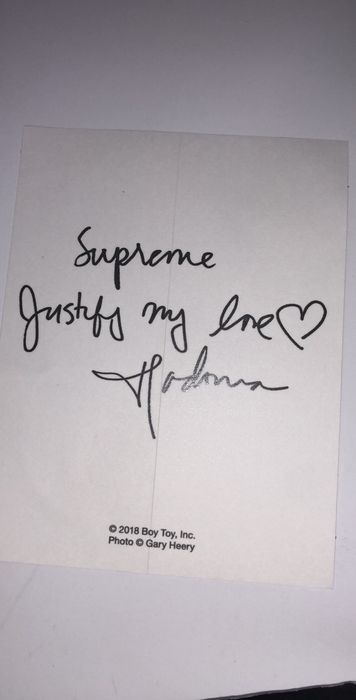 Supreme
Justify my love♡
Madonna
© 2018 Boy Toy, Inc.
Photo © Gary Heery